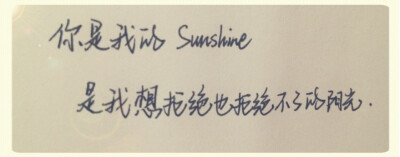 你是我的 Sunshine
是我想拒绝也拒绝不了的阳光.